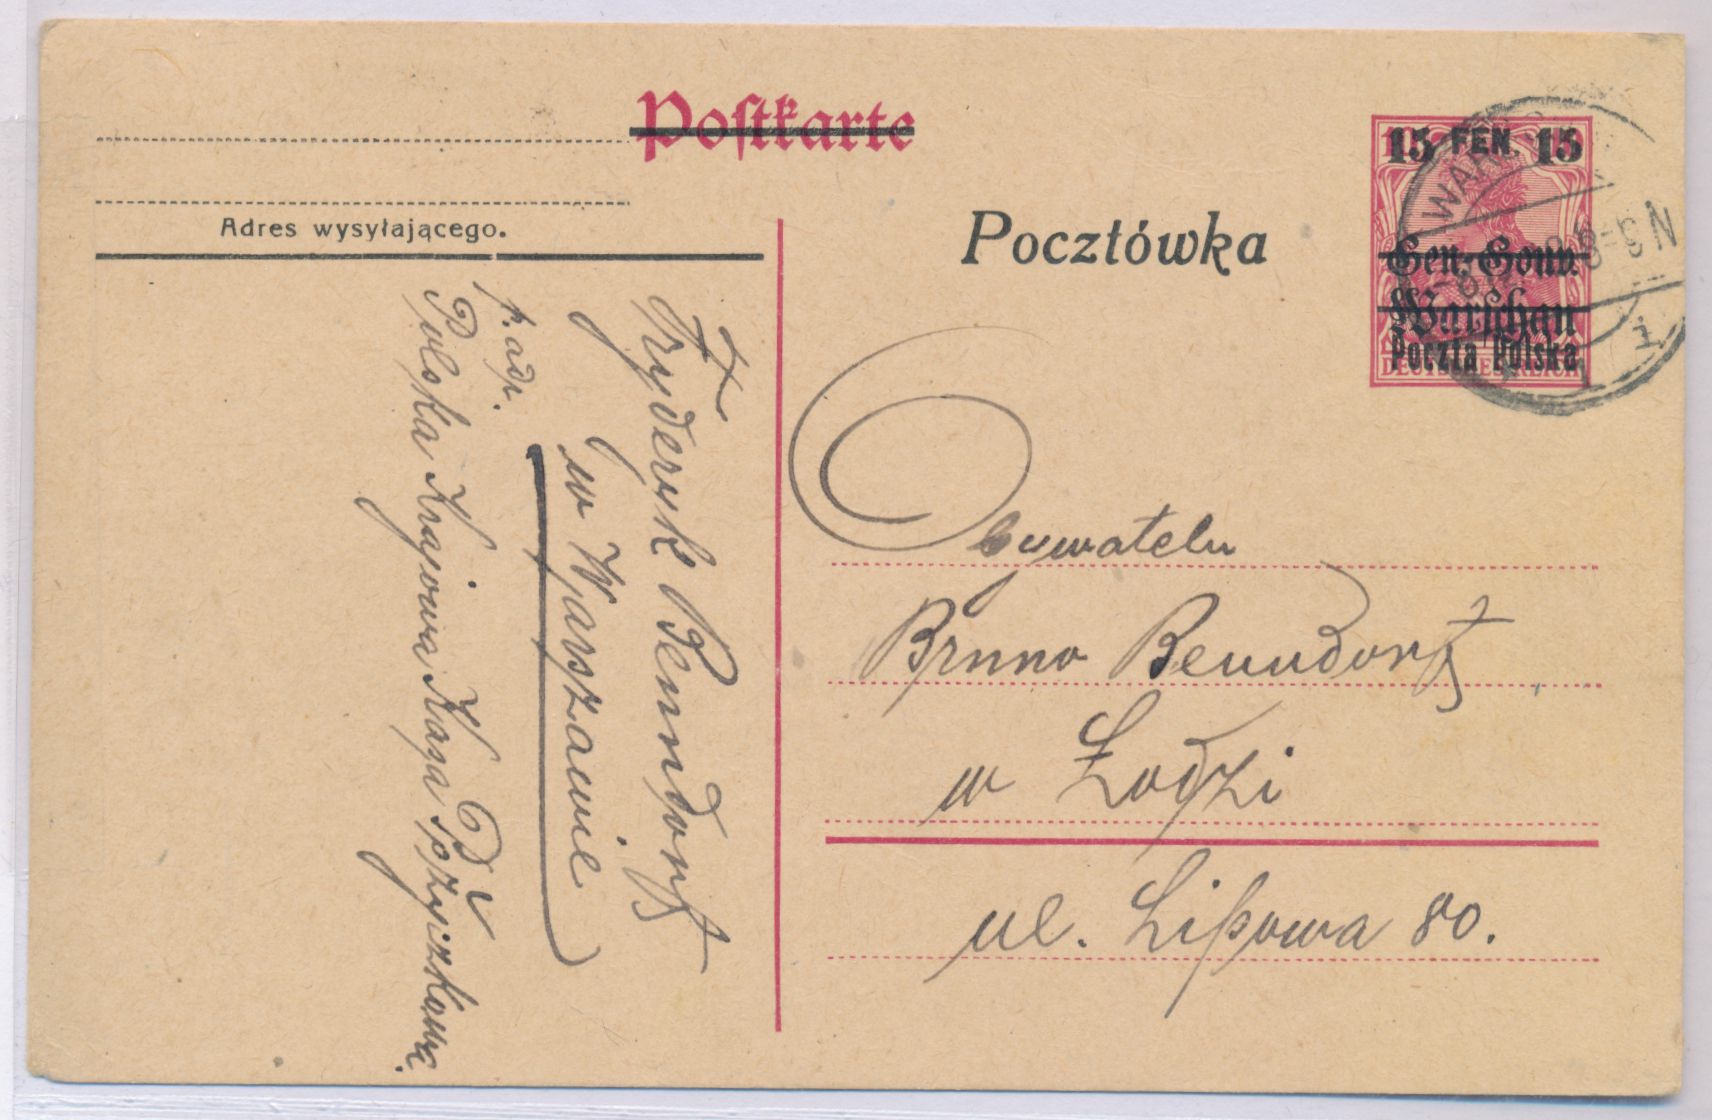 Postkarte
Pocztówka
Adres wysyłającego.
15 FEN. 15
Gen.-Gouv.
Warschau
Poczta Polska
DEUTSCHES REICH
WARSCHAU
8-9 N
1
Obywatelu
Bruno Benndorf
w Łodzi
ul. Lipowa 80.
Fryderyk Benndorf
w Warszawie
p. adr.
Polska Krajowa Kasa Pożyczkowa.